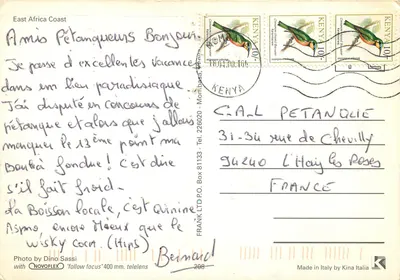 East Africa Coast
Amis Pétanqueurs Bonjour
Je passe d'excellentes vacances
dans un lieu paradisiaque
J'ai disputé un concours de
pétanque et alors que j'allais
marquer le 13ème point ma
Boule a fondue! C'est dire
s'il fait froid.
La Boisson locale, c'est Quinine
Aspro, encore Mieux que le
Wisky coca. (Hips)
Bernard
Photo by Dino Sassi
with NOVOFLEX "follow focus" 400 mm. telelens
208
FRANK LTD P.O. Box 81133 - Tel. 225020 - Mombasa, Kenya
KENYA 10/-
KENYA 10/-
KENYA 10/-
MOMBASA
KENYA
C.A.L PETANQUE
31-34 rue de Chevilly
94240 L'Haÿ les Roses
FRANCE
Made in Italy by Kina Italia
K